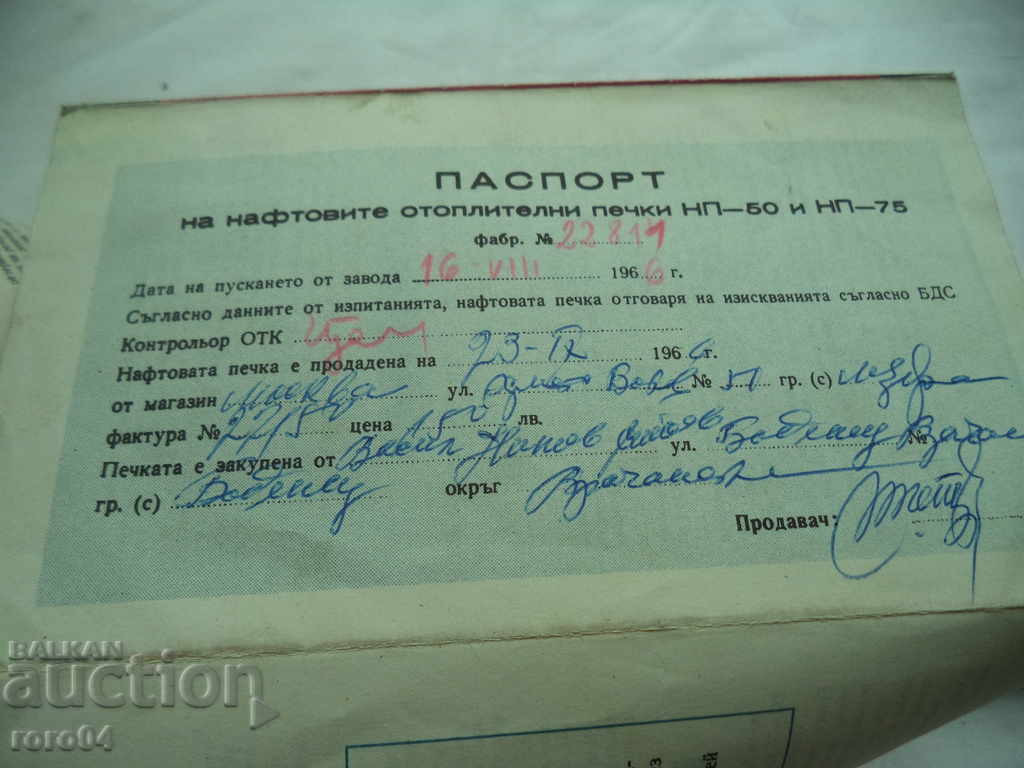 ПАСПОРТ
на нафтовите отоплителни печки НП—50 и НП—75
фабр. № 22814
Дата на пускането от завода 16-VIII 1966 г.
Съгласно данните от изпитанията, нафтовата печка отговаря на изискванията съгласно БДС
Контрольор ОТК
Нафтовата печка е продадена на 23-IX 1966 г.
от магазин Москва ул. № гр. (с) Мездра
фактура № цена 150 лв.
Печката е закупена от Васил Нинов ул. №
гр. (с) окръг Врачански
Продавач:
BALKAN
auction
roro04
з
ей